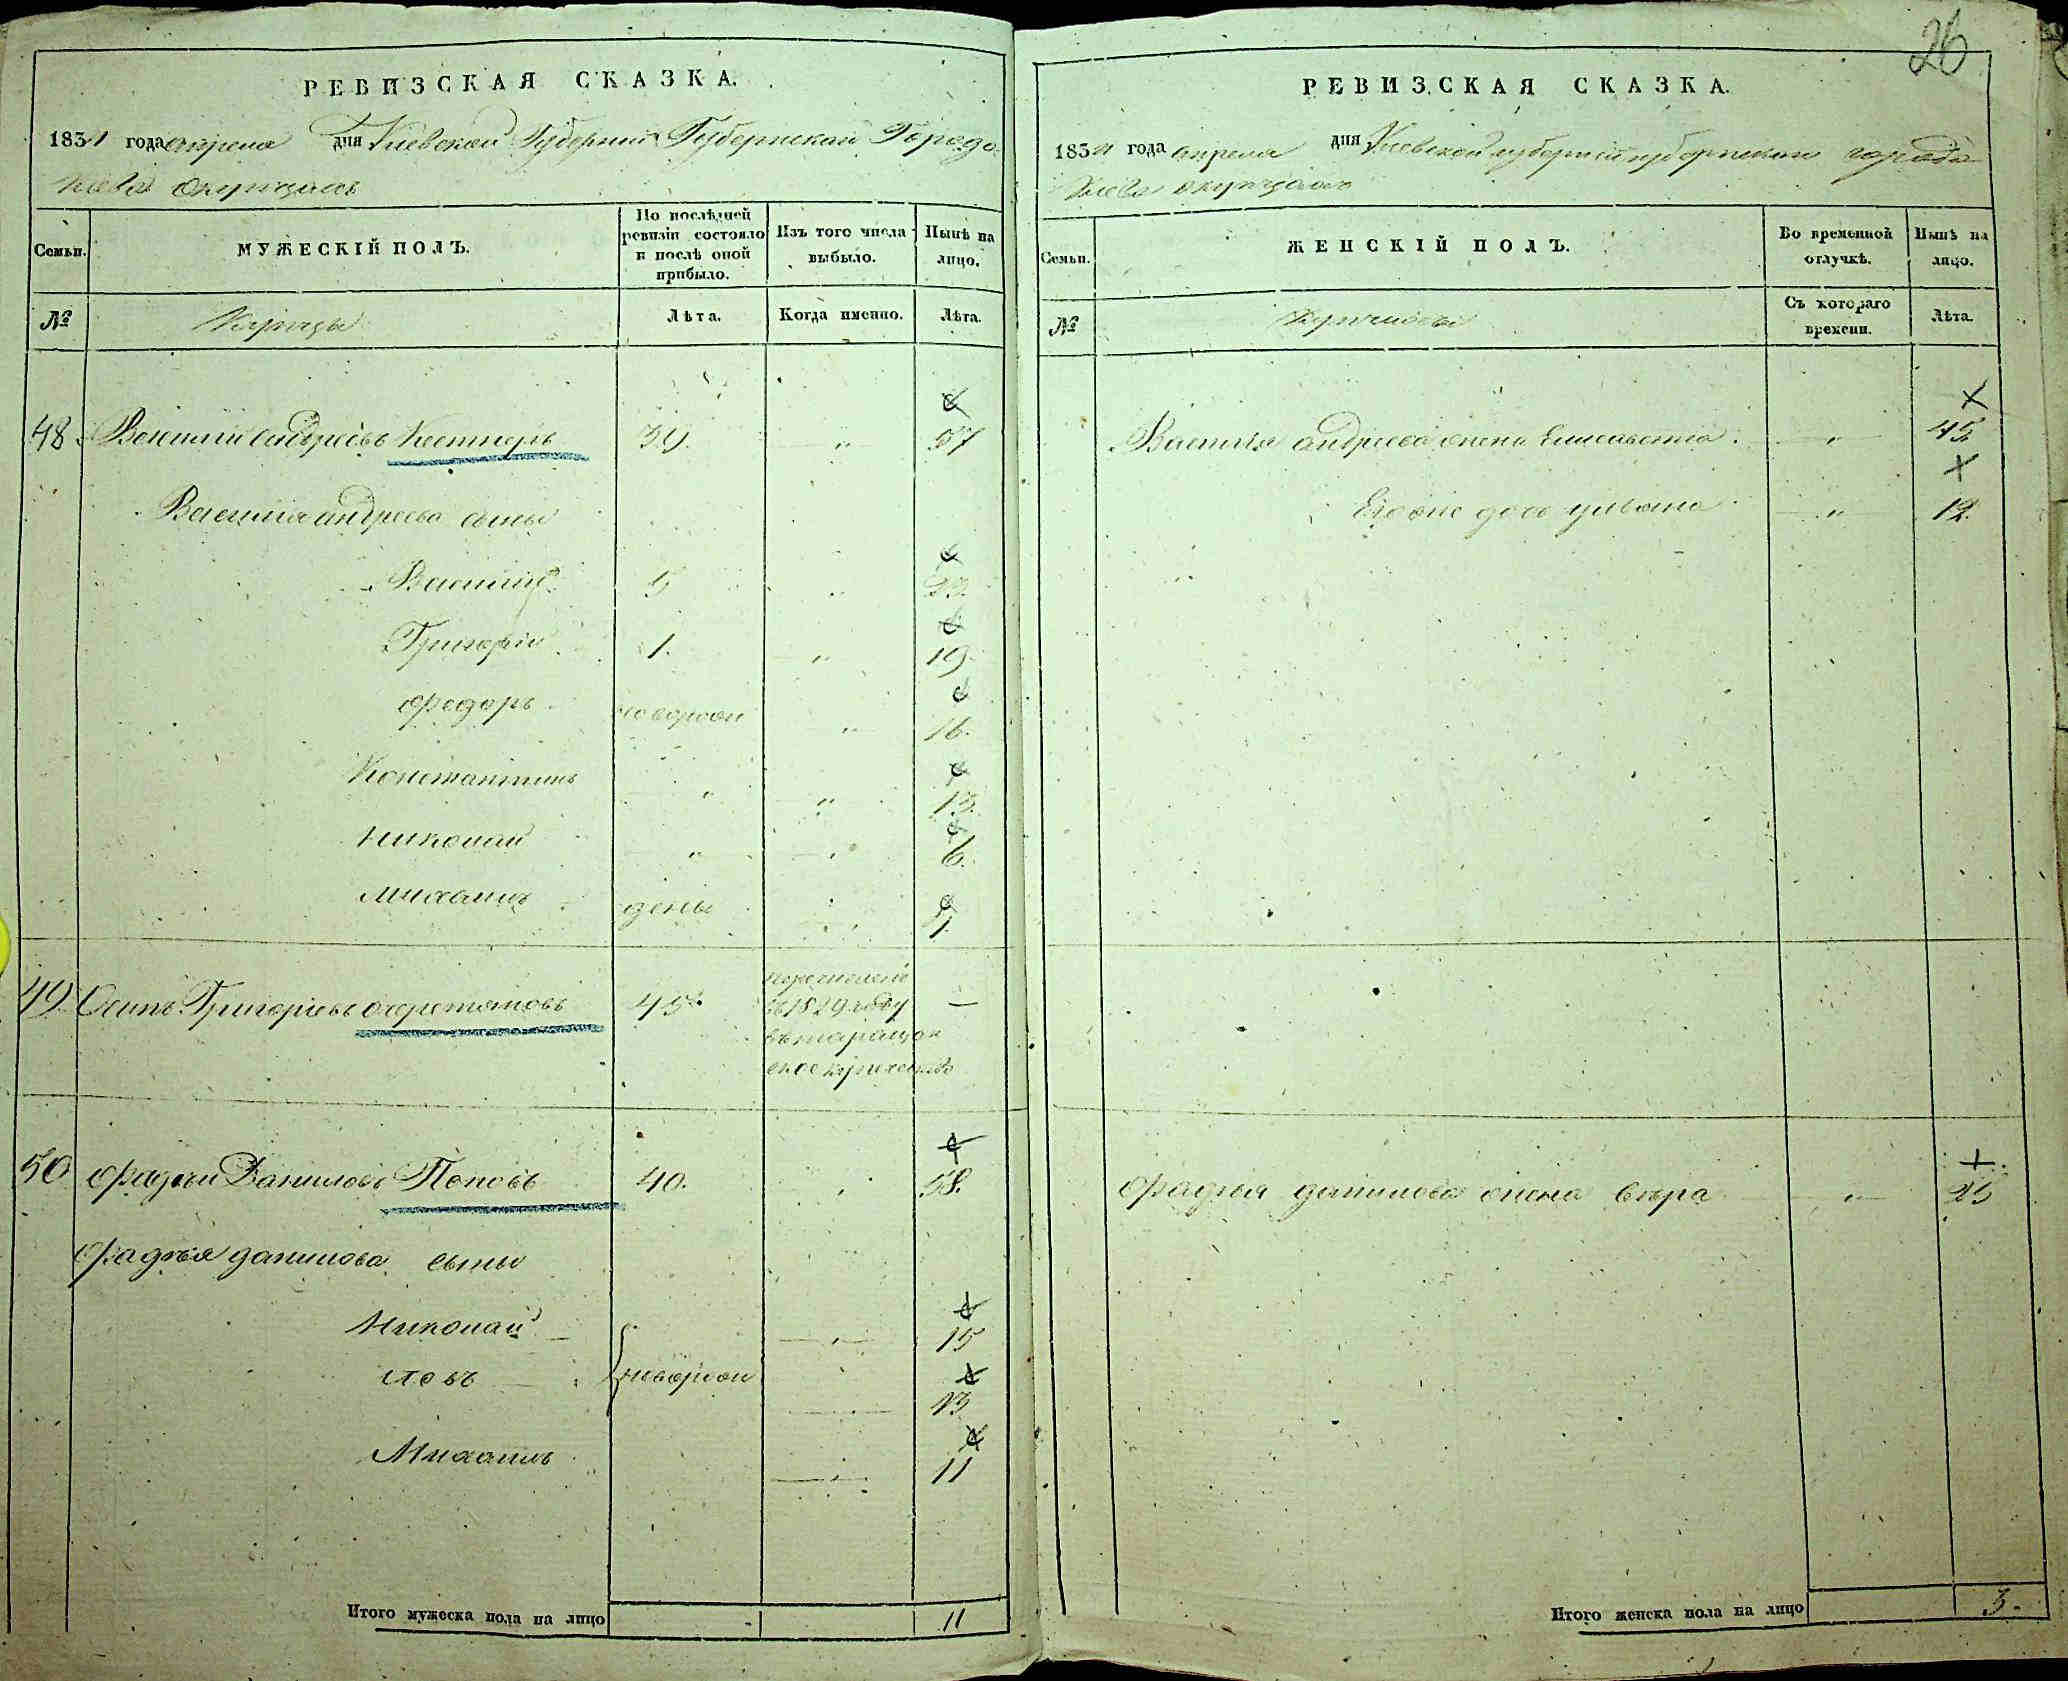 РЕВИЗСКАЯ СКАЗКА.
1834 года апреля дня Киевской Губернии Губернскаго Города
Киева Окупцахъ
Семьи.
МУЖЕСКІЙ ПОЛЪ.
По послѣдней ревизіи состояло и послѣ оной прибыло.
Изъ того числа выбыло.
Нынѣ на лицо.
№
Купцы
Лѣта.
Когда именно.
Лѣта.
48. Василий Андреевъ 39. " 57
Василия андреева сыны
Василий 5 " 23.
Григорій 1. " 19.
Федоръ новорож " 16.
Константинъ " " 13.
Николай " " 6.
Михаилъ " 1
49. Осипъ Григорьевъ 45. перечисленъ
въ 1829 году —
въ таращан
ское купечество
50 Фадѣй Даниловъ Поповъ 40. " 58.
Фадѣя данилова сыны
Николай " 15
новорож 13
Михаилъ " 11
Итого мужеска пола на лицо 11
26
РЕВИЗСКАЯ СКАЗКА.
1834 года апреля дня Киевской губерніи губернскаго города
Киева окупцахъ
Семьи.
ЖЕНСКІЙ ПОЛЪ.
Во временной отлучкѣ.
Нынѣ на лицо.
№
Съ котораго времени.
Лѣта.
Василия андреева жена Елисавета " 45.
Егоже дочь " 12.
Фадѣя данилова жена вера " 25
Итого женска пола на лицо 3.